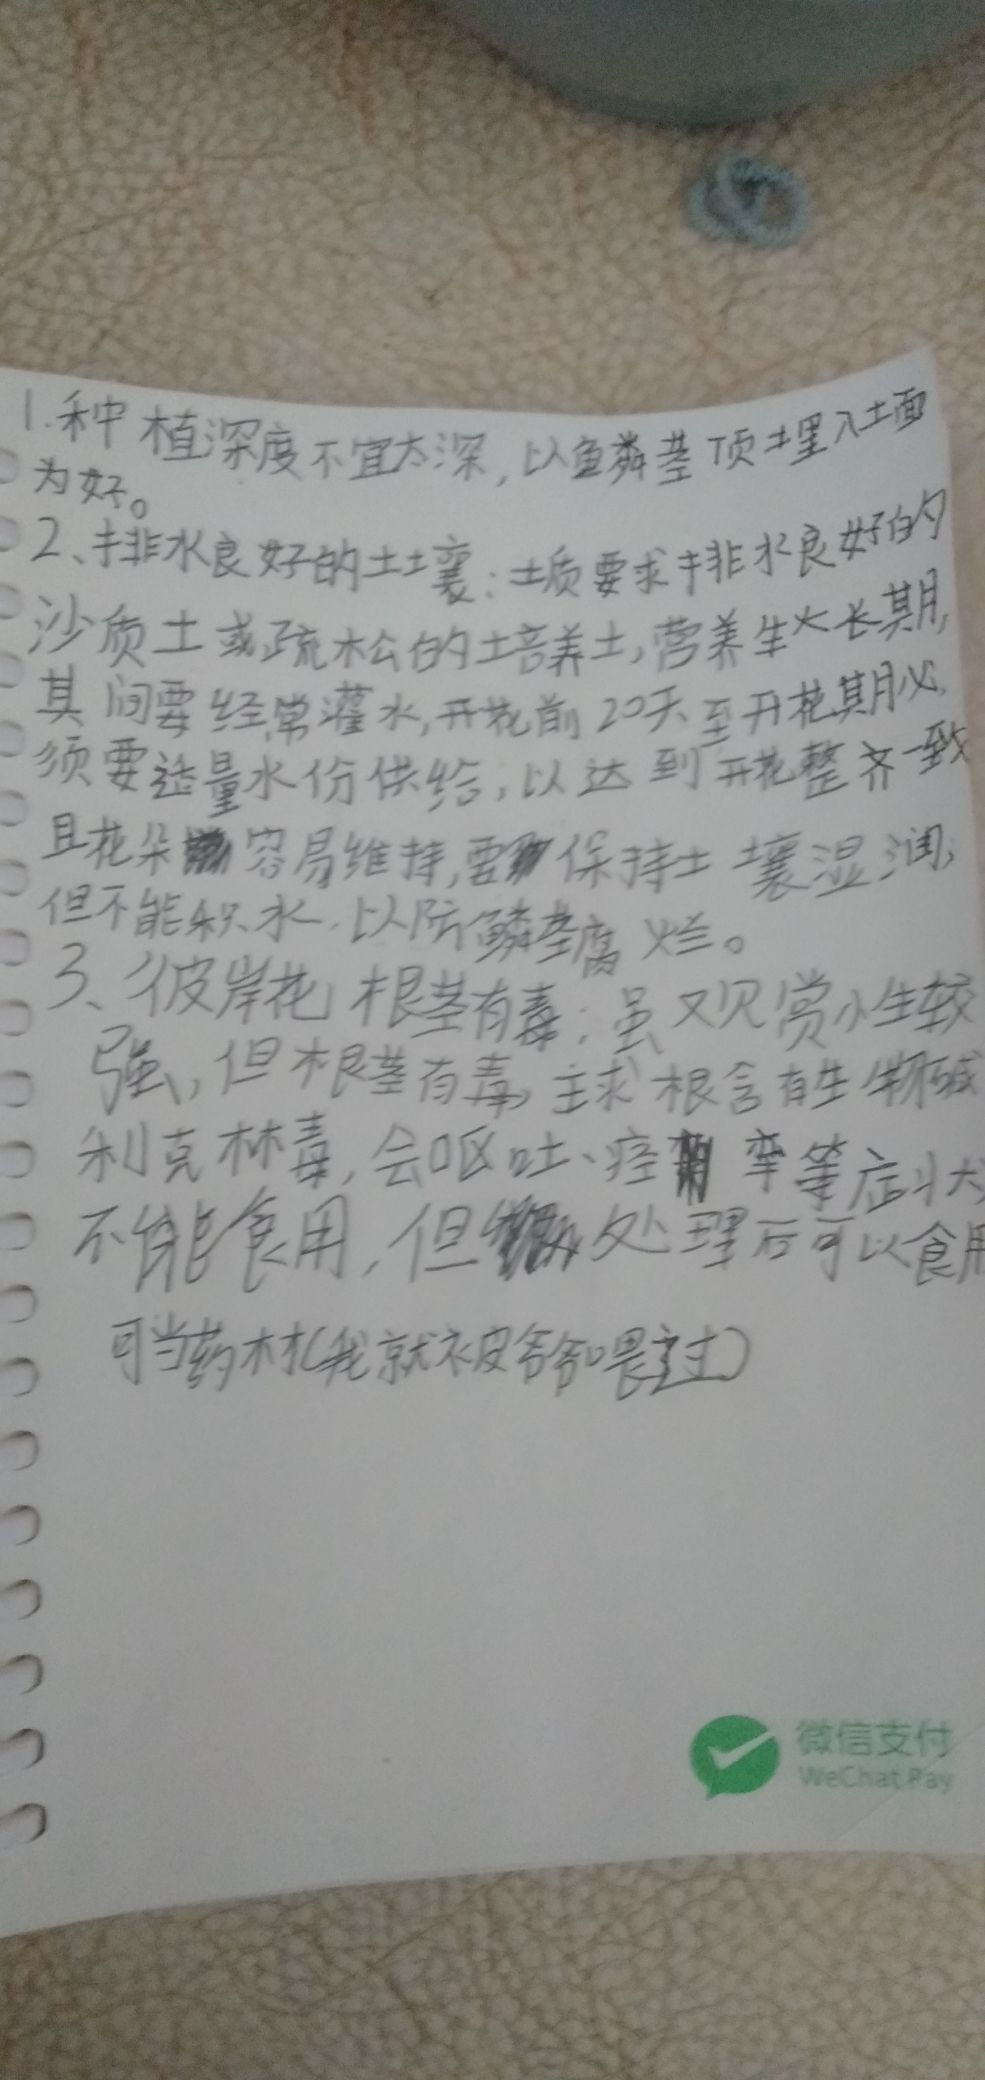 1.种植深度不宜太深,以鳞茎顶埋入土面
为好。
2、排水良好的土壤:土质要求排水良好的
沙质土或疏松的培养土,营养生长期,
其间要经常灌水,开花前20天至开花期必
须要适量水份供给,以达到开花整齐一致
且花朵容易维持,要保持土壤湿润,
但不能积水.以防鳞茎腐烂。
3、彼岸花根茎有毒:虽观赏性较
强,但根茎有毒,球根含有生物碱
利克林毒,会呕吐、痉挛等症状
不能食用,但处理后可以食用
可当药材(我就被爷爷喂过)
微信支付
WeChat Pay